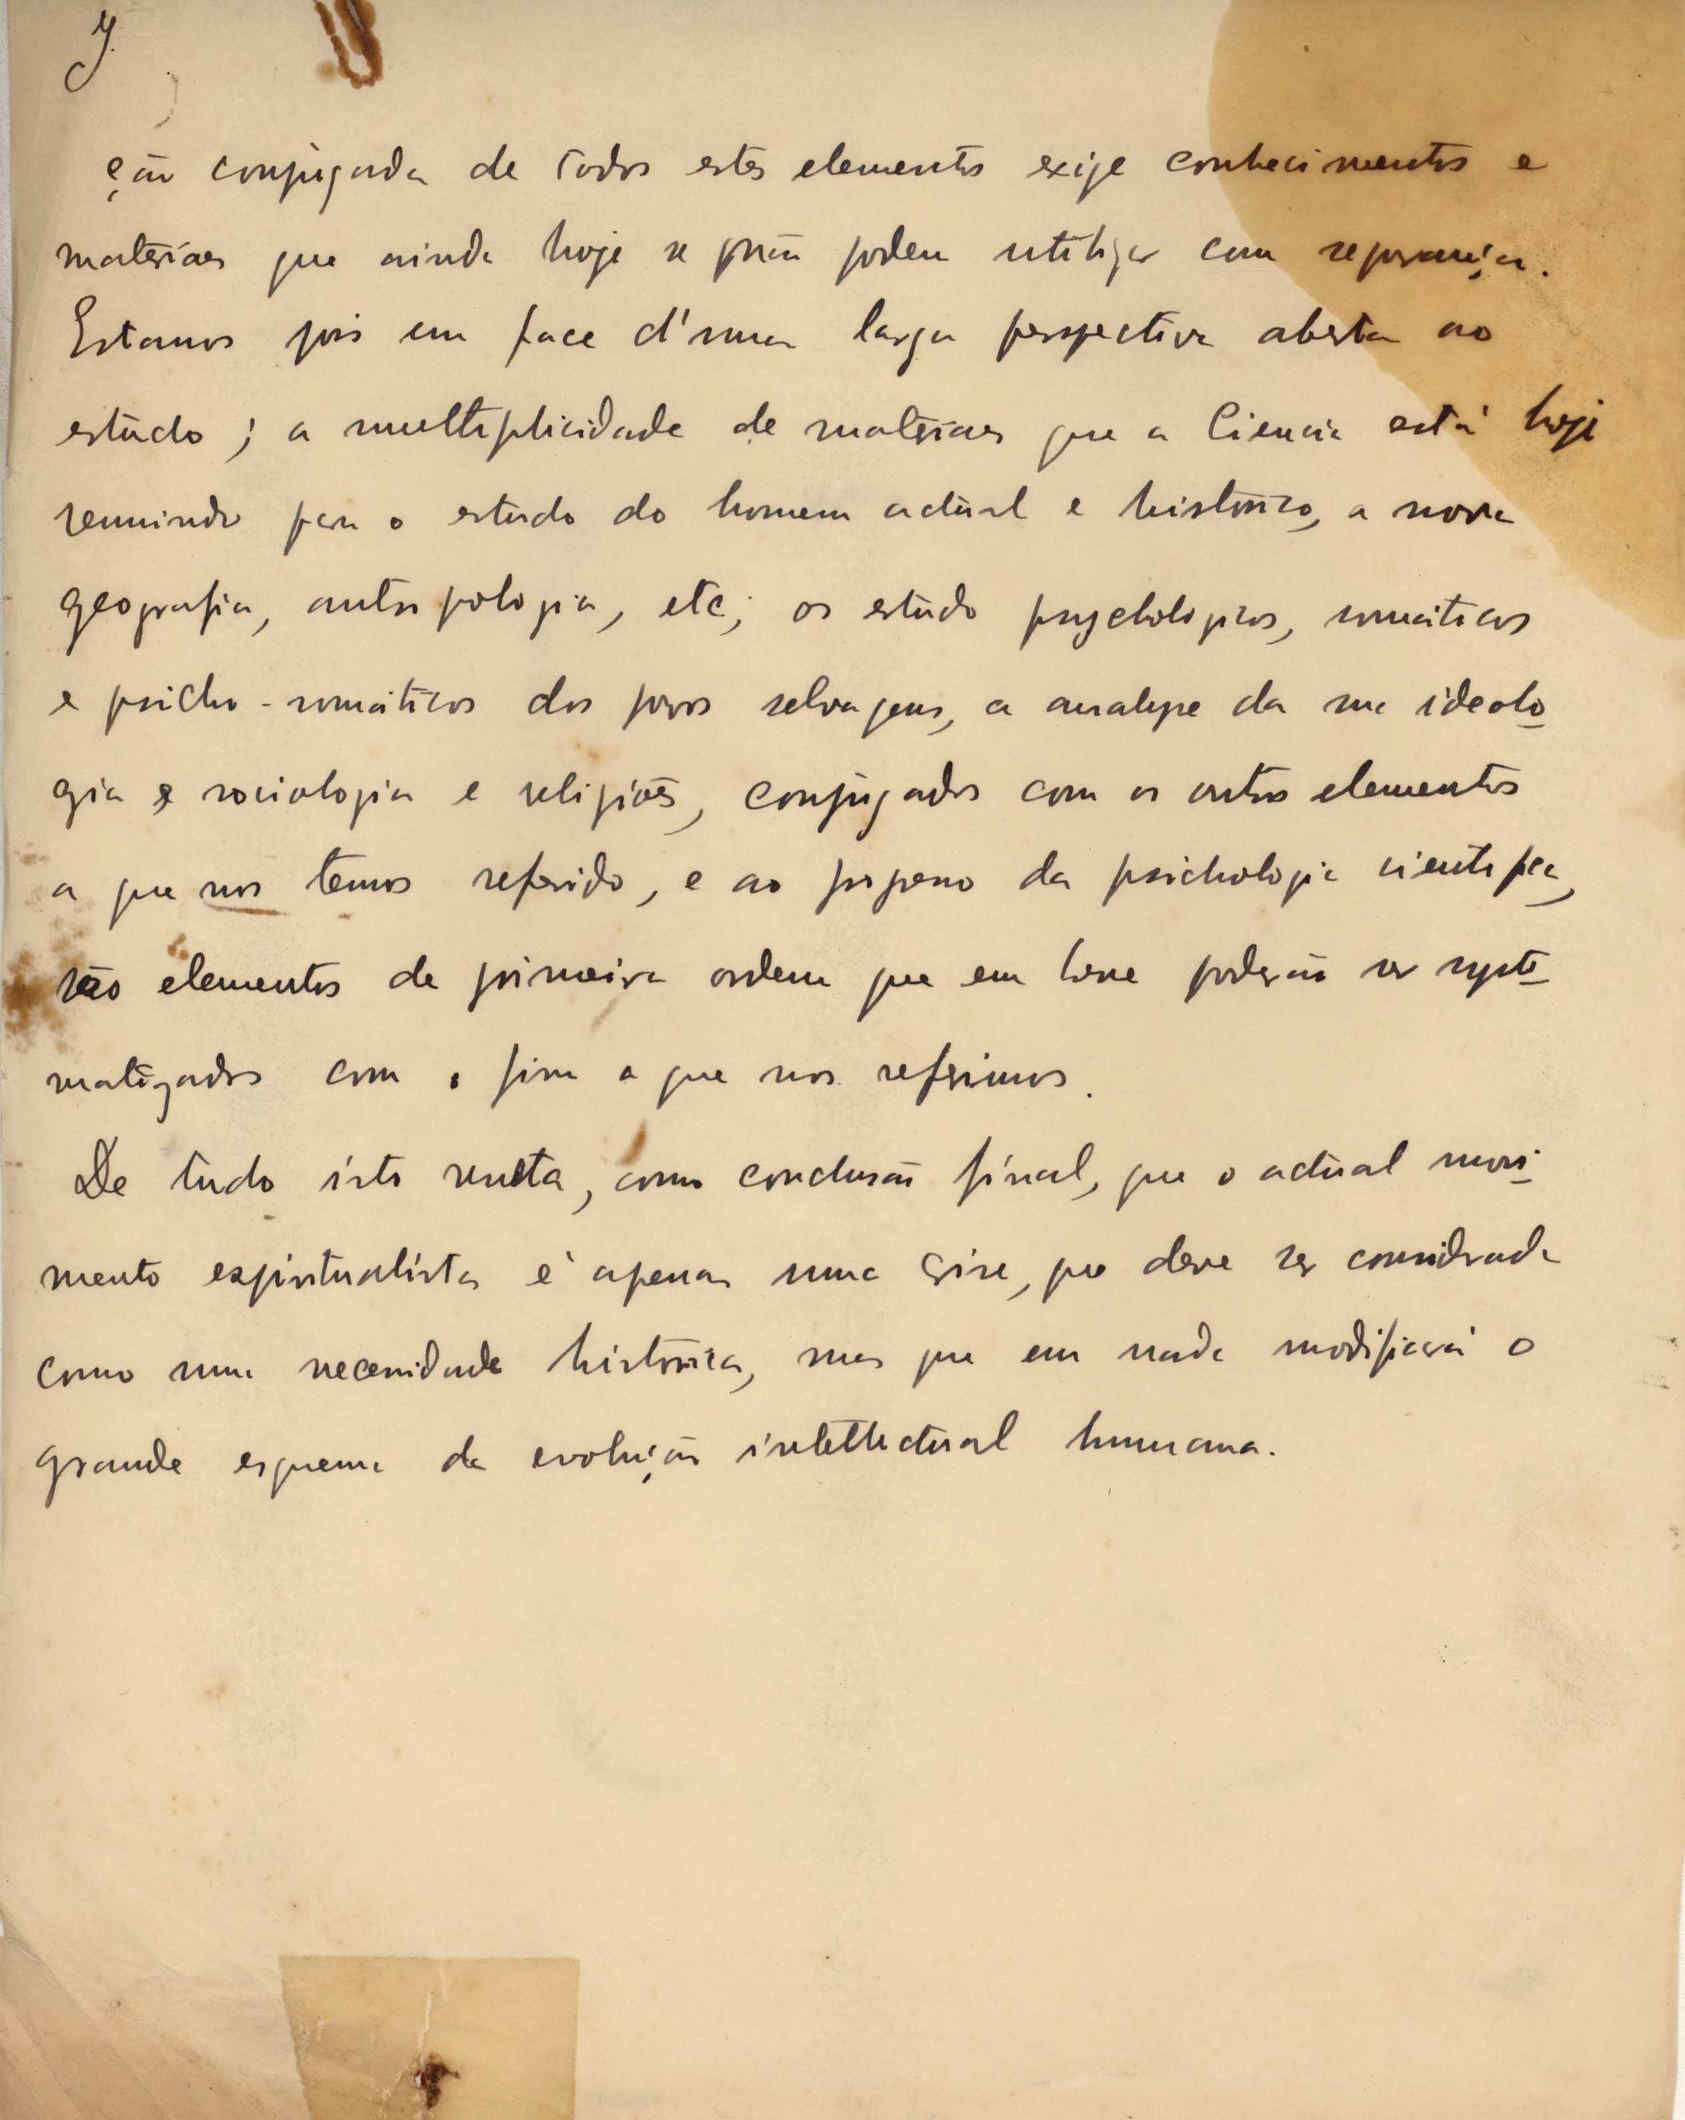 y.
ção conjugada de todos estes elementos exige conhecimentos e
materiaes que ainda hoje se não podem utilizar com segurança.
Estamos pois em face d'uma larga perspectiva aberta ao
estudo; a multiplicidade de materiaes que a Ciencia está hoje
reunindo para o estudo do homem actual e historico, a nova
geografia, antropologia, etc; os estudo psychologicos, somáticos
e psicho-somáticos dos povos selvagens, a analyse da sua ideolo-
gia e sociologia e religiões, conjugados com os outros elementos
a que nos temos referido, e ao progresso da psichologia cientifica,
são elementos de primeira ordem que em breve poderão ser syste-
matizados com o fim a que nos referimos.
De tudo isto resulta, como conclusão final, que o actual movi-
mento espiritualista é apenas uma crise, que deve ser considerada
como uma necessidade historica, mas que em nada modificará o
grande esquema da evolução intellectual humana.